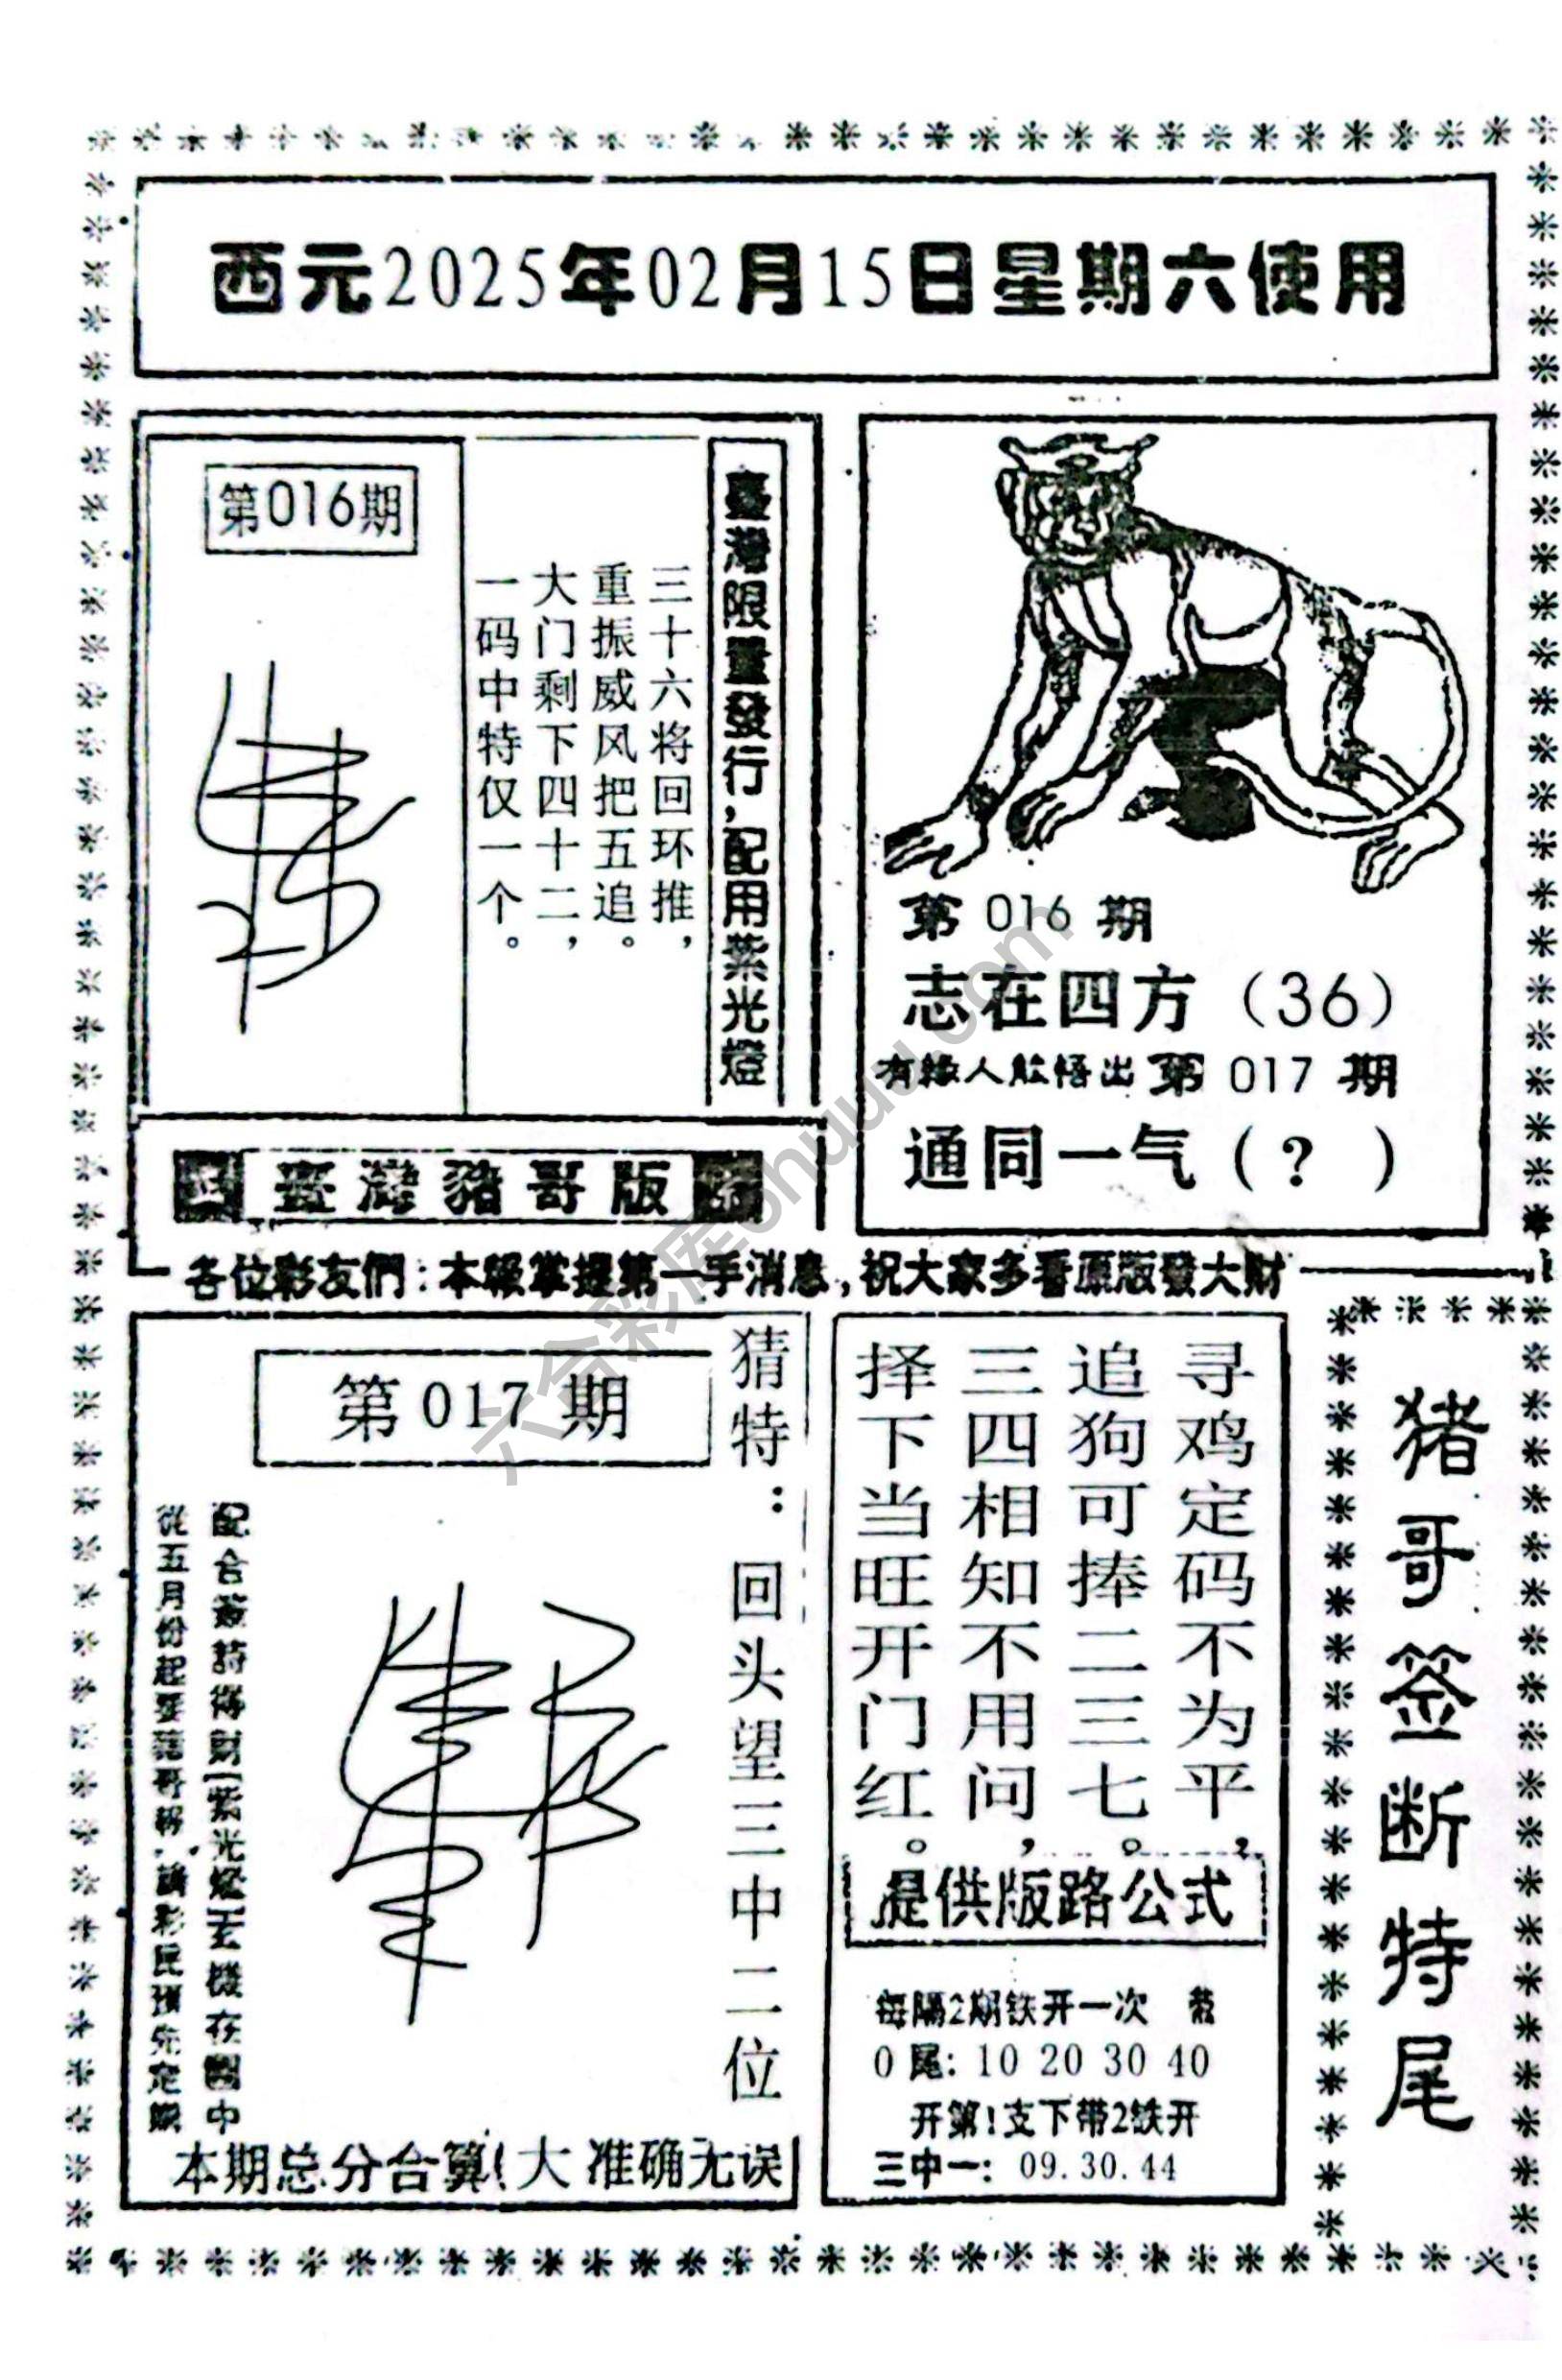 西元2025年02月15日星期六使用
第016期
臺灣限量發行,配用紫光燈
三十六将回环推,
重振威风把五追。
大门剩下四十二,
一码中特仅一个。
第 016 期
志在四方（36）
有緣人能悟出 第 017 期
通同一气（？）
臺灣豬哥版
各位彩友們:本報掌握第一手消息,祝大家多看原版發大財
第017期
猜特：回头望三中二位
配合簽詩得財(紫光燈)玄機在圖中
從五月份起要豬哥報,請彩民預先定購
本期总分合算!大 准确无误
寻鸡定码不为平,
追狗可捧二三七。
三四相知不用问,
择下当旺开门红。
提供版路公式
每隔2期铁开一次
0尾: 10 20 30 40
开第!支下带2铁开
三中一: 09.30.44
猪哥签断特尾
六合彩库ohuuu.com